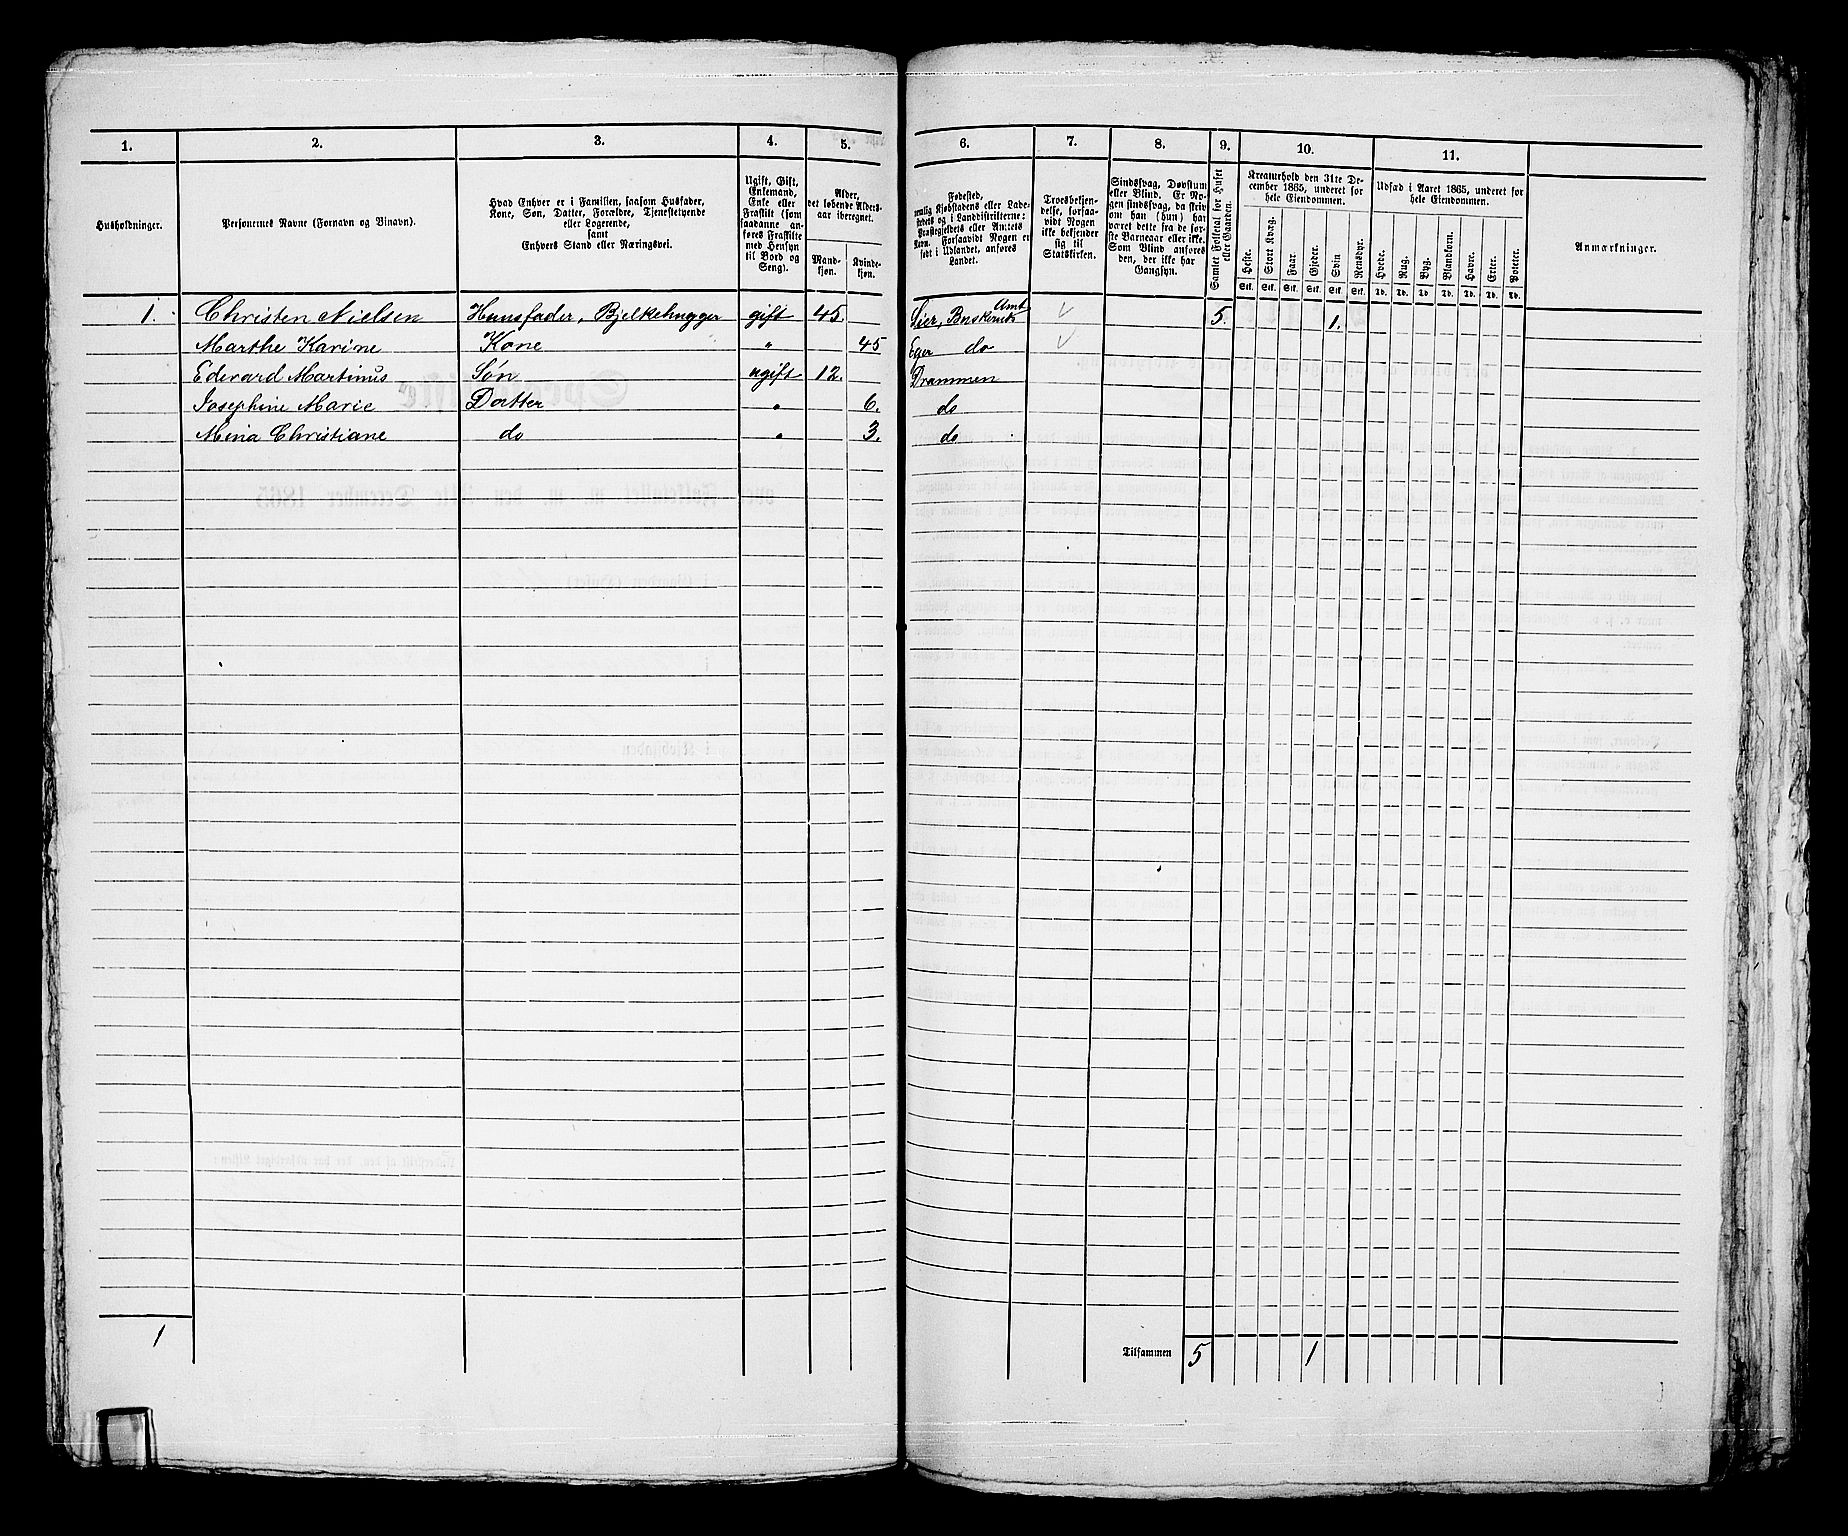 1. 2. 3. 4. 5. 6. 7. 8. 9. 10. 11.
Husholdninger.
Personernes Navne (Fornavn og Binavn).
Hvad Enhver er i Familien, saasom Husfader,
Kone, Søn, Datter, Forældre, Tjenestetyende
eller Logerende,
samt
Enhvers Stand eller Næringsvei.
Ugift, Gift,
Enkemand,
Enke eller
Fraskilt (som
saadanne an-
føres Fraskilte
med Hensyn
til Bord og
Seng).
Alder,
det løbende Alders-
aar iberegnet.
Mand-
kjøn.
Kvinde-
kjøn.
Fødested,
nemlig Kjøbstadens eller Lade-
stedets og i Landdistrikterne:
Præstegjeldets eller Amtets
Navn. Forsaavidt Nogen er
født i Udlandet, anføres
Landet.
Troesbekjen-
delse, forsaa-
vidt Nogen
ikke bekjender
sig til
Statskirken.
Sindssvag, Døvstum
eller Blind. Er No-
gen sindssvag, da skriv
om han (hun) har
været dette fra de før-
ste Barneaar eller ikke.
Som Blind anføres
den, der ikke har
Gangsyn.
Samlet Folketal for Huset
eller Gaarden.
Kreaturhold den 31te De-
cember 1865, underet for
hele Eiendommen.
Heste. Stort Kvæg. Faar. Gjeder. Svin Rensdyr.
Stk. Stk. Stk. Stk. Stk. Stk.
Udsæd i Aaret 1865, underet for
hele Eiendommen.
Hvede. Rug. Byg. Blandkorn. Havre. Erter. Poteter.
Td. Td. Td. Td. Td. Td. Td.
Anmærkninger.
1. Christen Nielsen Huusfader, Bjelkehugger gift 45. Lier, Buskeruds Amt 5. 1.
Marthe Karine Kone " 45 Eger do
Edevard Martinus Søn ugift 12. Drammen
Josephine Marie Datter " 6. do
Mina Christiane do " 3. do
1
Tilsammen 5 1